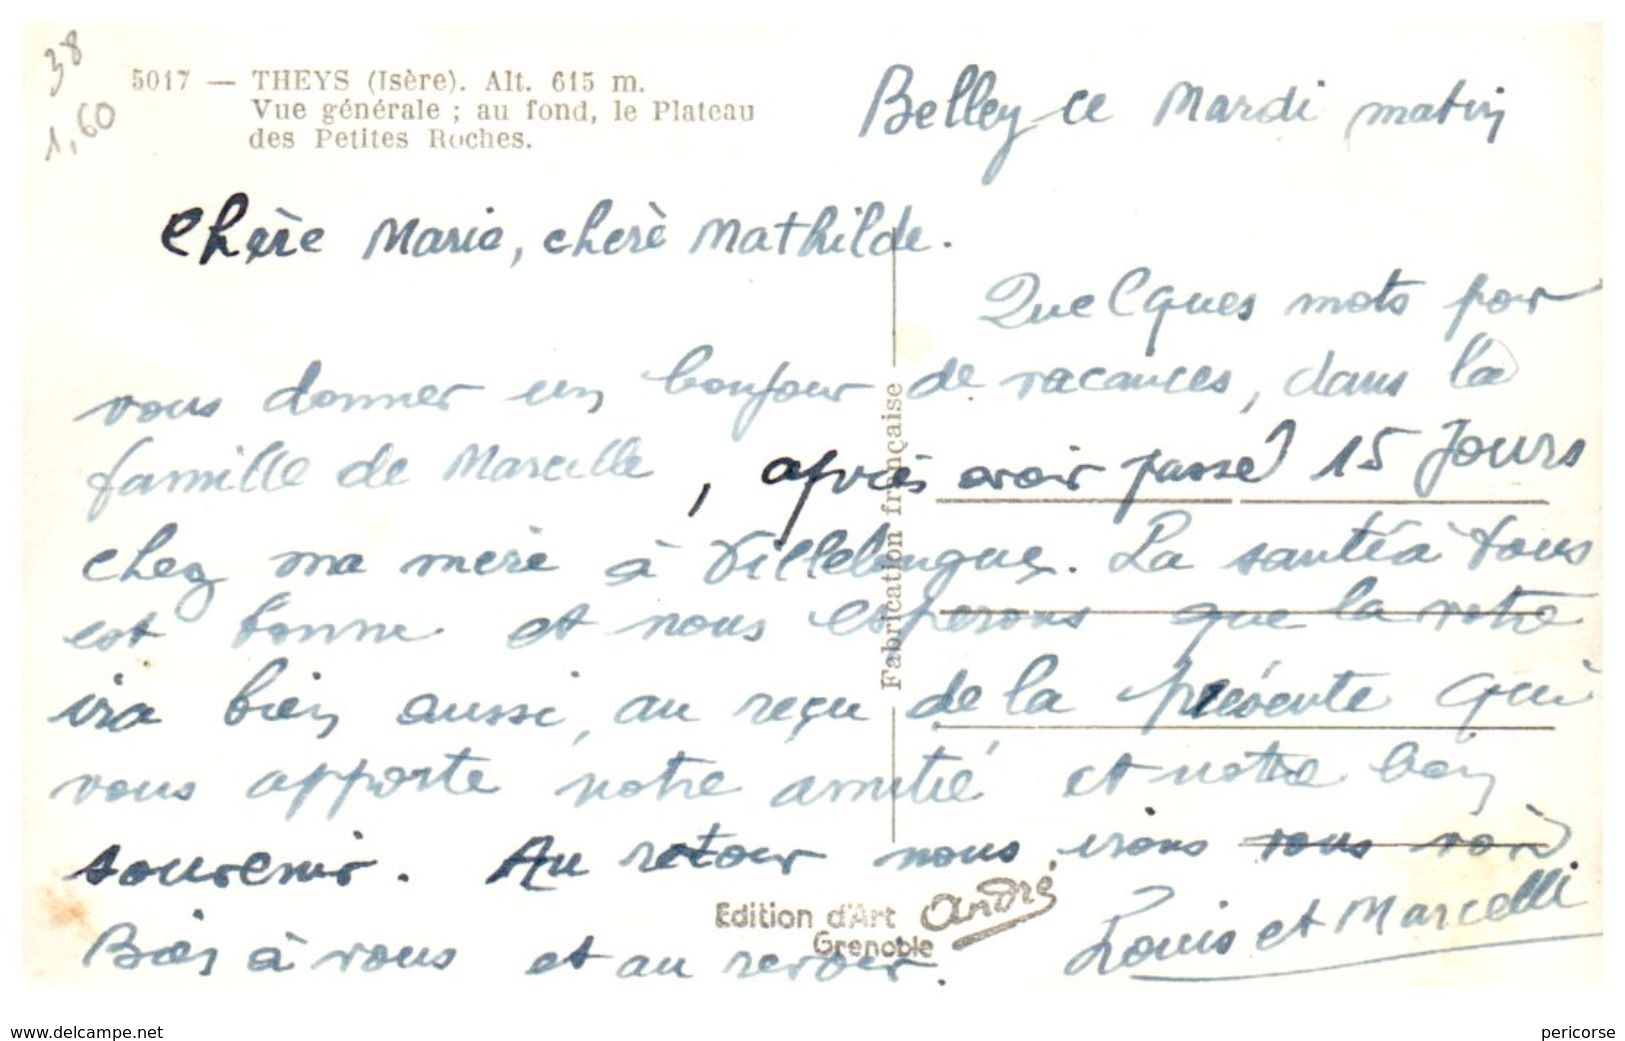 38
1,60
5017 — THEYS (Isère). Alt. 615 m.
Vue générale ; au fond, le Plateau
des Petites Roches.
Belley ce Mardi matin
Chère Marie, chère Mathilde.
Quelques mots pour
vous donner un bonjour de vacances, dans la
famille de Marcelle, après avoir passé 15 Jours
chez ma mère à Villelongue. La santé à tous
est bonne et nous esperons que la votre
ira bien aussi, au reçu de la présente qui
vous apporte notre amitié et notre bon
souvenir. Au retour nous irons vous voir
Bien à vous et au revoir.
Louis et Marcelle
Fabrication française
Edition d'Art André
Grenoble
www.delcampe.net
pericorse